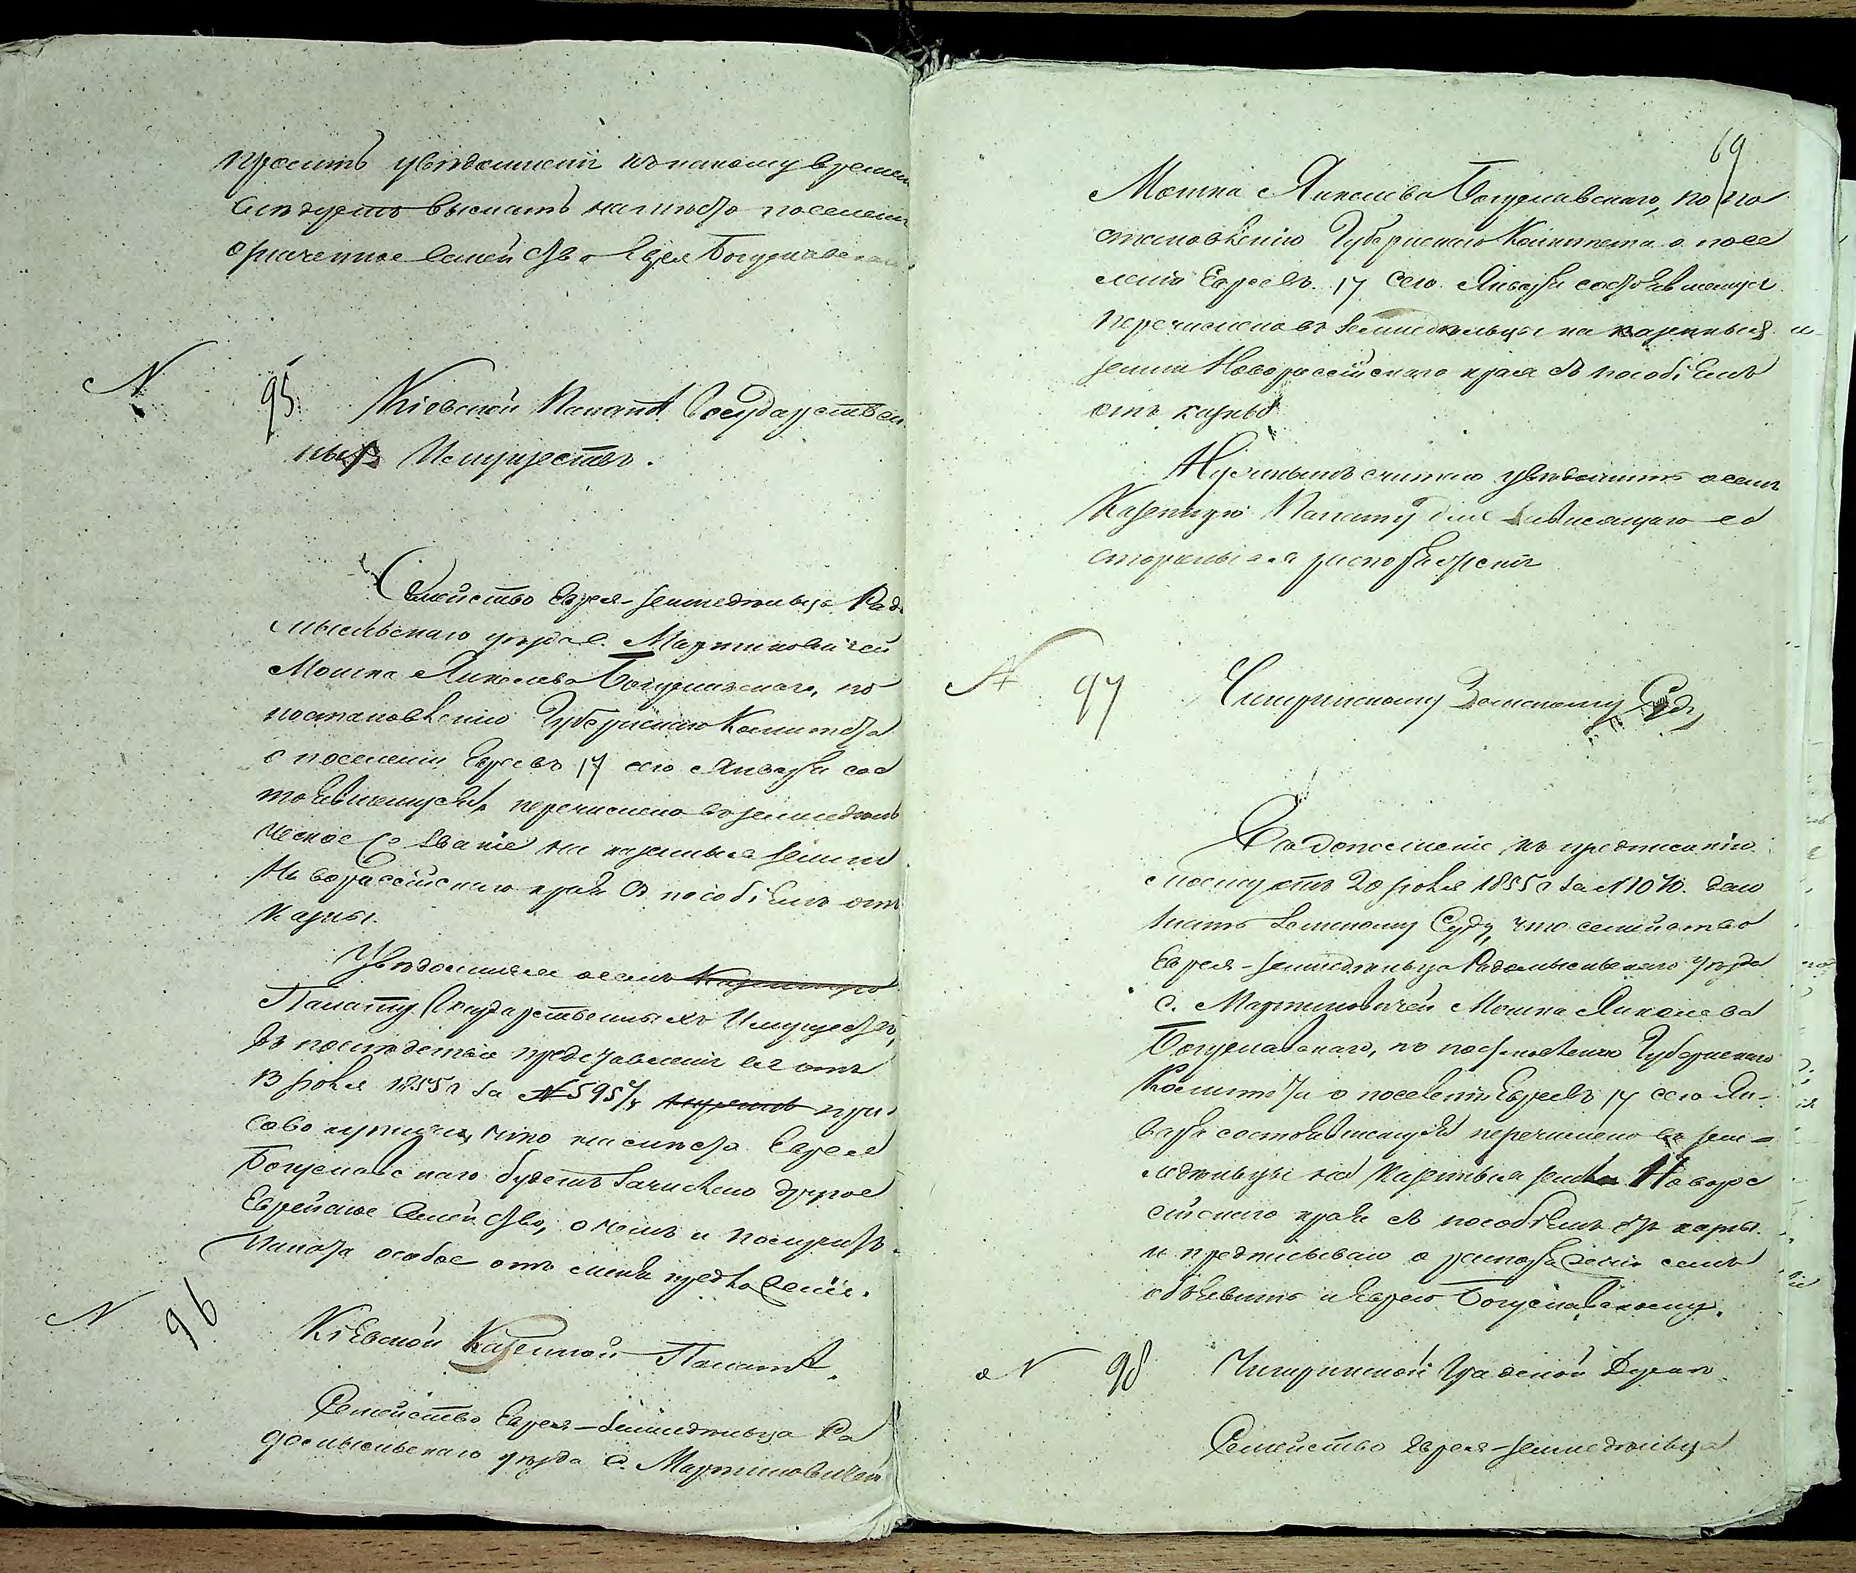 просить увѣдомленія къ какому времени
слѣдуетъ выслать на мѣсто поселенія
означенное семейство Еврея Богуславскаго
N 95. Кіевской Палатѣ Государствен
ныхъ Имуществъ.
Семейство Еврея-земледѣльца Радо
мысльскаго уѣзда с. Мартиновичей
Мошка Янкелева Богуславскаго, по
постановленію Губернскаго Комитета
о поселеніи Евреевъ 17 сего Января сос
тоявшемуся, перечислено въ земледѣль
ческое званіе на казенныя земли
Новороссійскаго края съ пособіемъ отъ
казны.
Увѣдомляя о семъ Казенную
Палату Государственныхъ Имуществъ,
въ послѣдствіе представленія ея отъ
13 Іюля 1855 г за № 5957, при
совокупляю, что на мѣсто Еврея
Богуславскаго будетъ зачислено другое
Еврейское семейство, о чемъ и получитъ
Палата особое отъ меня предложеніе.
N 96 Кіевской Казенной Палатѣ.
Семейство Еврея-земледѣльца Ра
домысльскаго уѣзда с. Мартиновичей
69
Мошка Янкелева Богуславскаго, по по
становленію Губернскаго Комитета о посе
леніи Евреевъ 17 сего Января состоявшемуся
перечислено въ земледѣльцы на казенныя
земли Новороссійскаго края съ пособіемъ
отъ казны.
Нужнымъ считаю увѣдомить о семъ
Казенную Палату для зависящаго съ
стороны ея распоряженія
N 97 Чигиринскому Земскому Суду
Въ дополненіе къ предписанію
моему отъ 20 Іюля 1855 г за N 1070. даю
знать Земскому Суду, что семейство
Еврея-земледѣльца Радомысльскаго уѣзда
с. Мартиновичей Мошка Янкелева
Богуславскаго, по постановленію Губернскаго
Комитета о поселеніи Евреевъ 17 сего Ян-
варя состоявшемуся перечислено въ зем-
ледѣльцы на казенныя земли Новорос
сійскаго края съ пособіемъ отъ казны.
и предписываю о распоряженіи семъ
объявить и Еврею Богуславскому.
N 98 Чигиринской Градской Думѣ
Семейство Еврея-земледѣльца